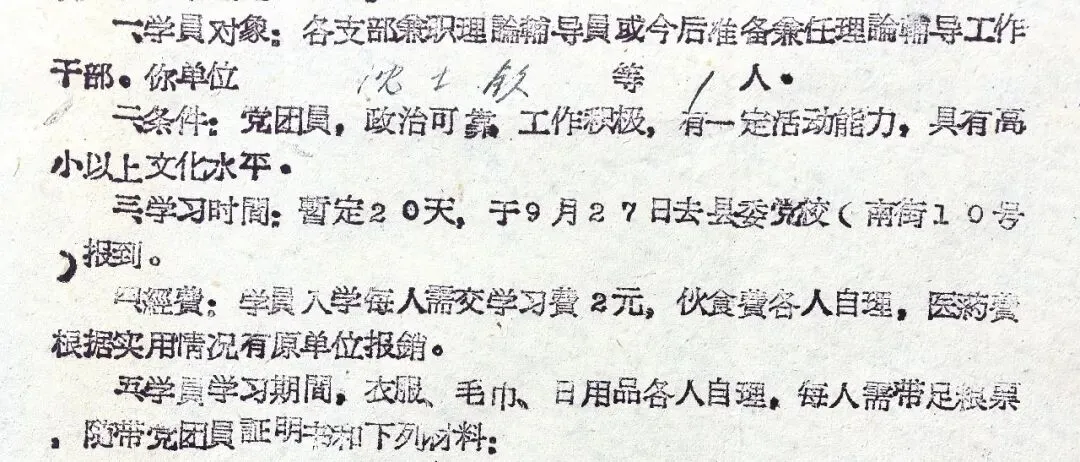 一、学員对象：各支部兼职理論輔导員或今后准备兼任理論輔导工作
干部。你单位 沈士欽 等 1 人。
二、条件：党团員，政治可靠，工作积极，有一定活动能力，具有高
小以上文化水平。
三、学习时間：暫定20天，于9月27日去县委党校（南街10号
）报到。
四、經費：学員入学每人需交学习費2元，伙食費各人自理，医葯費
根据实用情况有原单位报銷。
五、学員学习期間，衣服、毛巾、日用品各人自理，每人需带足粮票
，随带党团員証明书和下列材料：